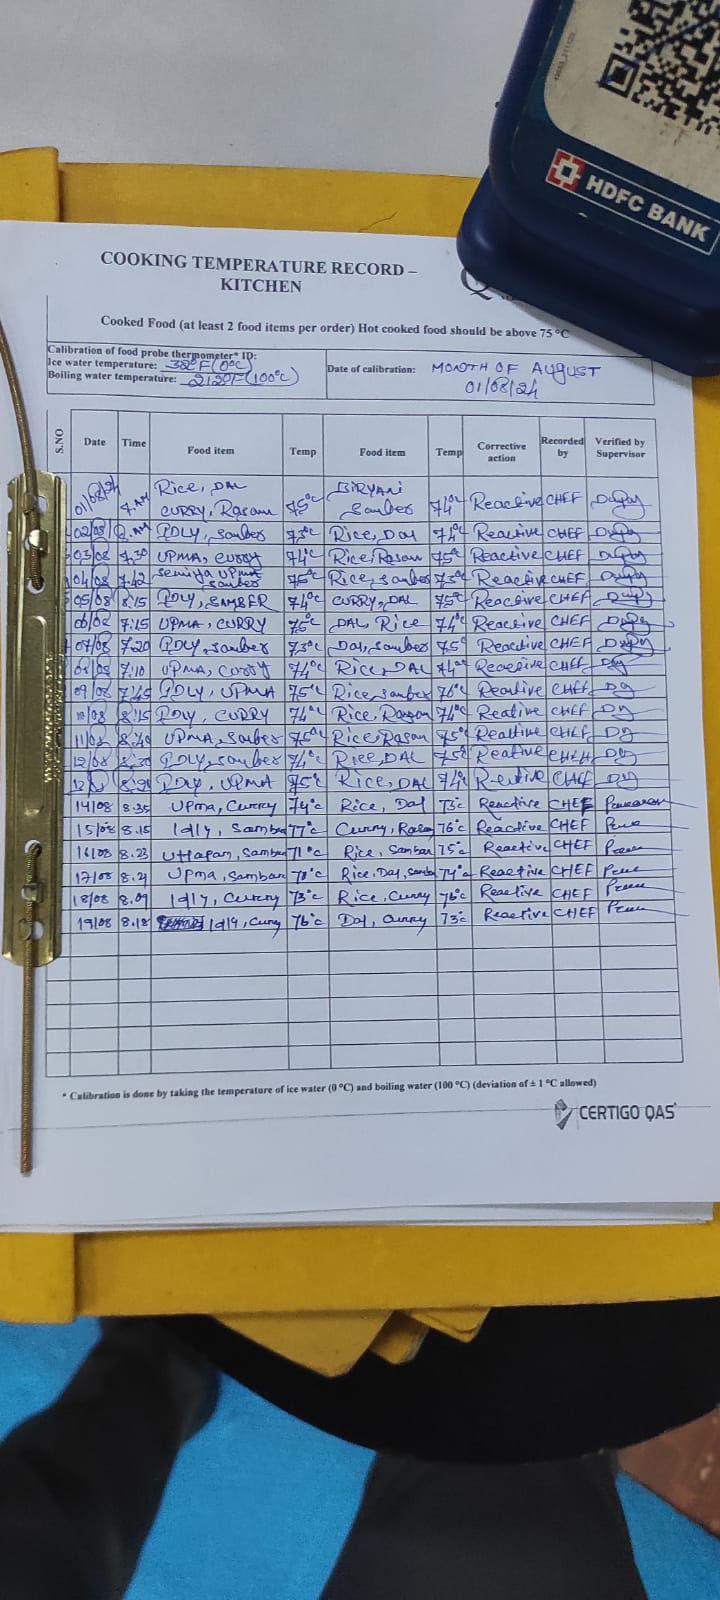 HDFC BANK
COOKING TEMPERATURE RECORD –
KITCHEN
Cooked Food (at least 2 food items per order) Hot cooked food should be above 75 °C
Calibration of food probe thermometer* ID:
Ice water temperature: 32°F (0°C)
Boiling water temperature: 212°F (100°C)
Date of calibration: MONTH OF AUGUST
01/08/24
S.NO Date Time Food item Temp Food item Temp Corrective action Recorded by Verified by Supervisor
01/08/24 7.AM Rice, DAL CURRY, Rasam 75°C BIRYANI Samber 74°C Reactive CHEF
02/08 IDLY, Samber 73°C Rice, Dal 74°C Reactive CHEF
03/08 7.30 UPMA, CURRY 74°C Rice, Rasam 75°C Reactive CHEF
04/08 7.42 Semiya UPMA Samber 75°C Rice, Samber 73°C Reactive CHEF
05/08 8:15 IDLY, SAMBER 74°C CURRY, DAL 75°C Reactive CHEF
06/08 7:15 UPMA, CURRY 75°C DAL Rice 74°C Reactive CHEF
07/08 7:20 IDLY, Samber 73°C Dal, Samber 75°C Reactive CHEF
08/08 7:10 UPMA, Curry 74°C Rice, DAL 74°C Reactive CHEF
09/08 7:45 IDLY, UPMA 75°C Rice, Samber 76°C Reactive CHEF Dg
10/08 8:15 IDLY, CURRY 74°C Rice, Rasam 74°C Reative CHEF Dg
11/08 8:40 UPMA, Samber 75°C Rice, Rasam 75°C Reative CHEF Dg
12/08 8:30 IDLY, Samber 74°C Rice, DAL 75°C Reative CHEF Dg
8:20 IDLY, UPMA 75°C Rice, DAL 74°C CHEF Dg
14/08 8.35 Upma, Curry 74°C Rice, Dal 73°C Reactive CHEF
15/08 8.15 Idly, Sambar 77°C Curry, Rasam 76°C Reactive CHEF
16/08 8.23 Uttapam, Sambar 71°C Rice, Sambar 75°C Reactive CHEF
17/08 8.21 Upma, Sambar 78°C Rice, Dal, Samba 74°C Reactive CHEF
18/08 8.09 Idly, Curry 73°C Rice, Curry 76°C Reactive CHEF
19/08 8.18 Idly, Curry 76°C Dal, Curry 73°C Reactive CHEF
* Calibration is done by taking the temperature of ice water (0 °C) and boiling water (100 °C) (deviation of ± 1 °C allowed)
CERTIGO QAS